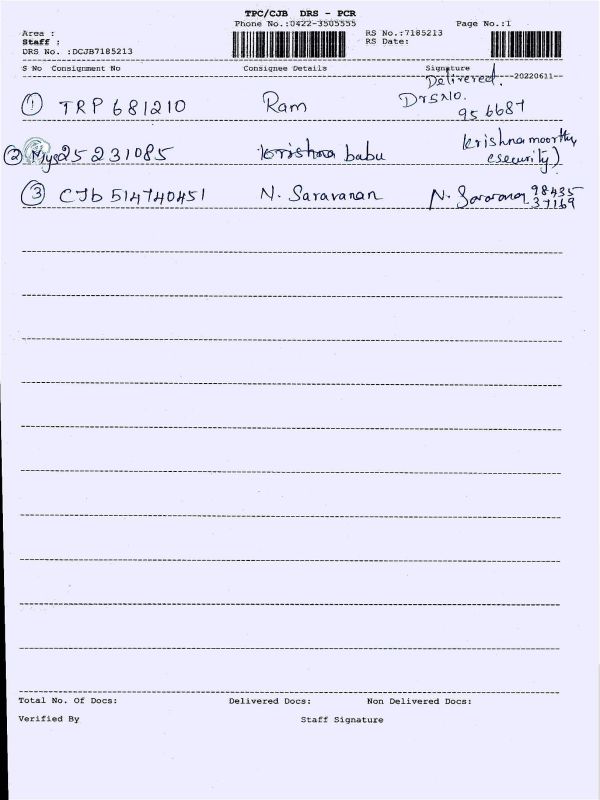 TPC/CJB DRS - PCR
Phone No.:0422-3505555 Page No.:1
Area : RS No.:7185213
Staff : RS Date:
DRS No. :DCJB7185213
S No Consignment No Consignee Details Signature
Delivered. --20220611--
① TRP 681210 Ram DrsNo. 956687
② Mys25231085 Krishna babu Krishnamoorthy (security)
③ CJb 514740451 N. Saravanan N. Saravanan 98435 37169
Total No. Of Docs: Delivered Docs: Non Delivered Docs:
Verified By Staff Signature